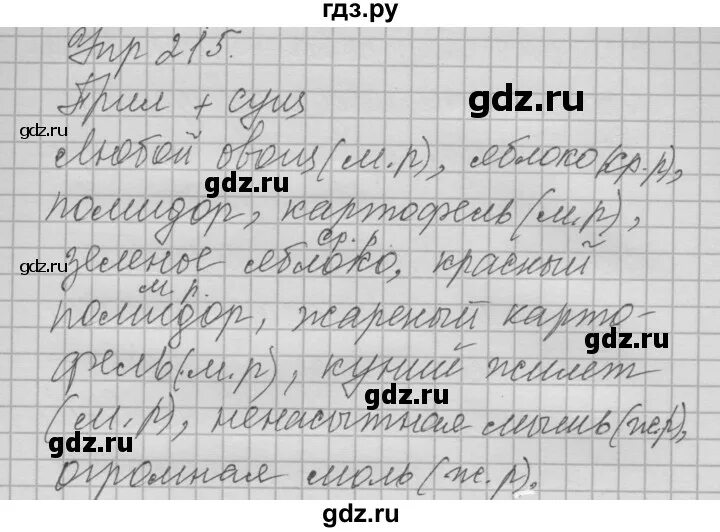 гдз.ру
Упр 215.
gdz.ru
Прил + сущ
gdz.ru
gdz.ru
Любой овощ (м.р), яблоко (ср.р),
gdz.ru
gdz.ru
помидор, картофель (м.р),
ср. р.
зеленое яблоко, красный
м. р.
помидор, жареный карто-
gdz.ru
фель (м.р), куний жилет
gdz.ru
(м.р), ненасытная мышь (ж.р),
gdz.ru
огромная моль (ж.р).
gdz.ru